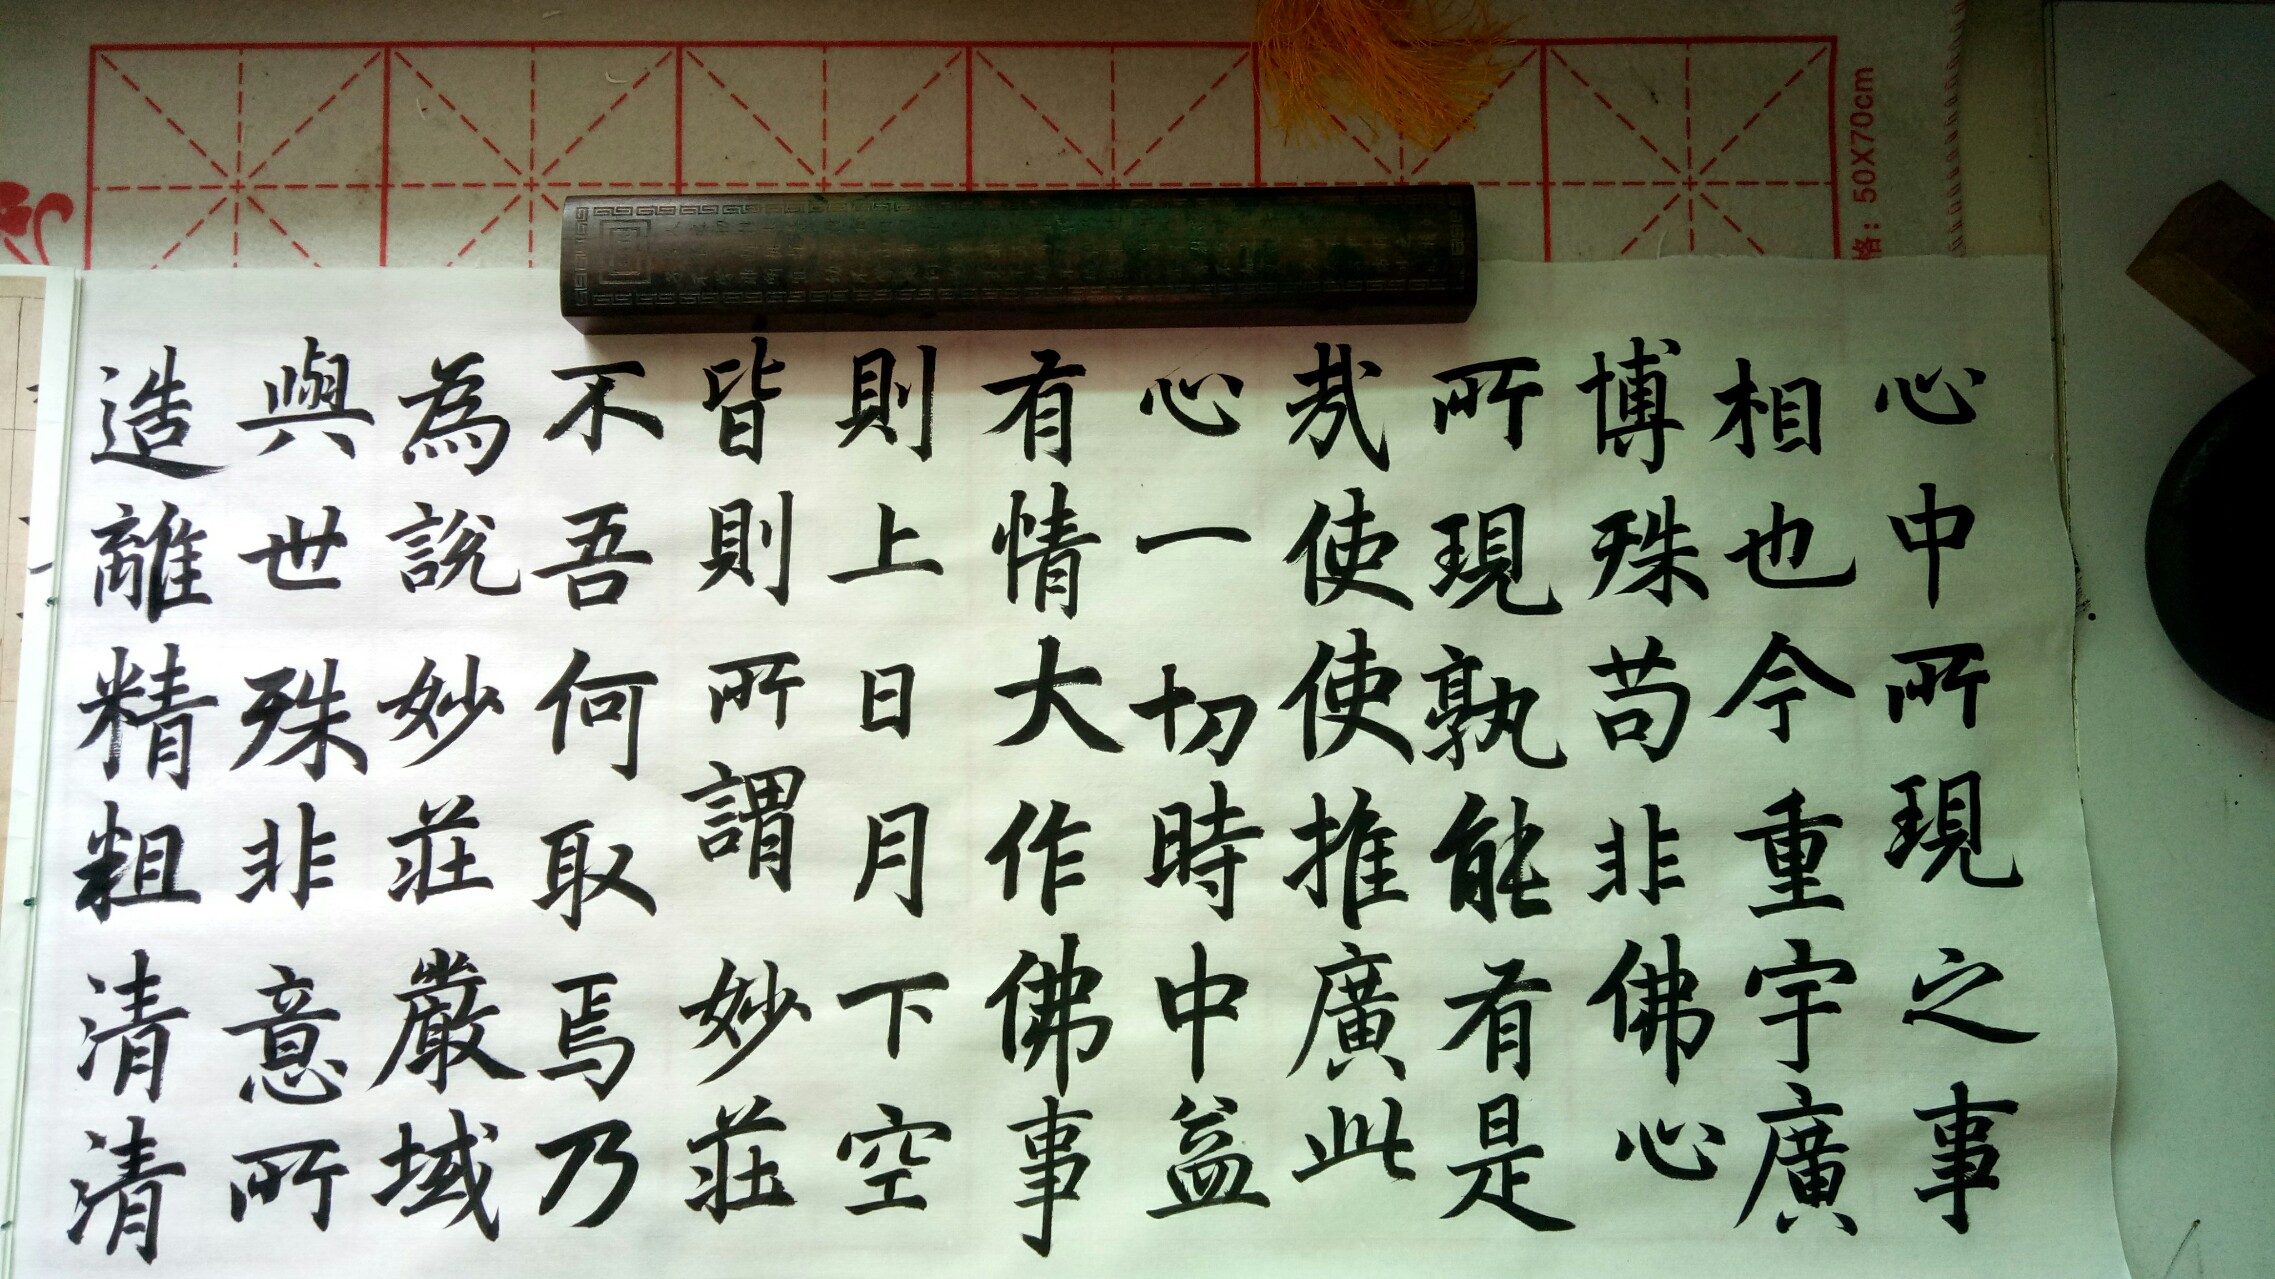 心中所現之事
相也今重宇廣
博殊茍非佛心
所現孰能有是
哉使使推廣此
心一切時中益
有情大作佛事
則上日月下空
皆則所謂妙莊
不吾何取焉乃
為說妙莊嚴域
與世殊非意所
造離精粗清清
格：50X70cm